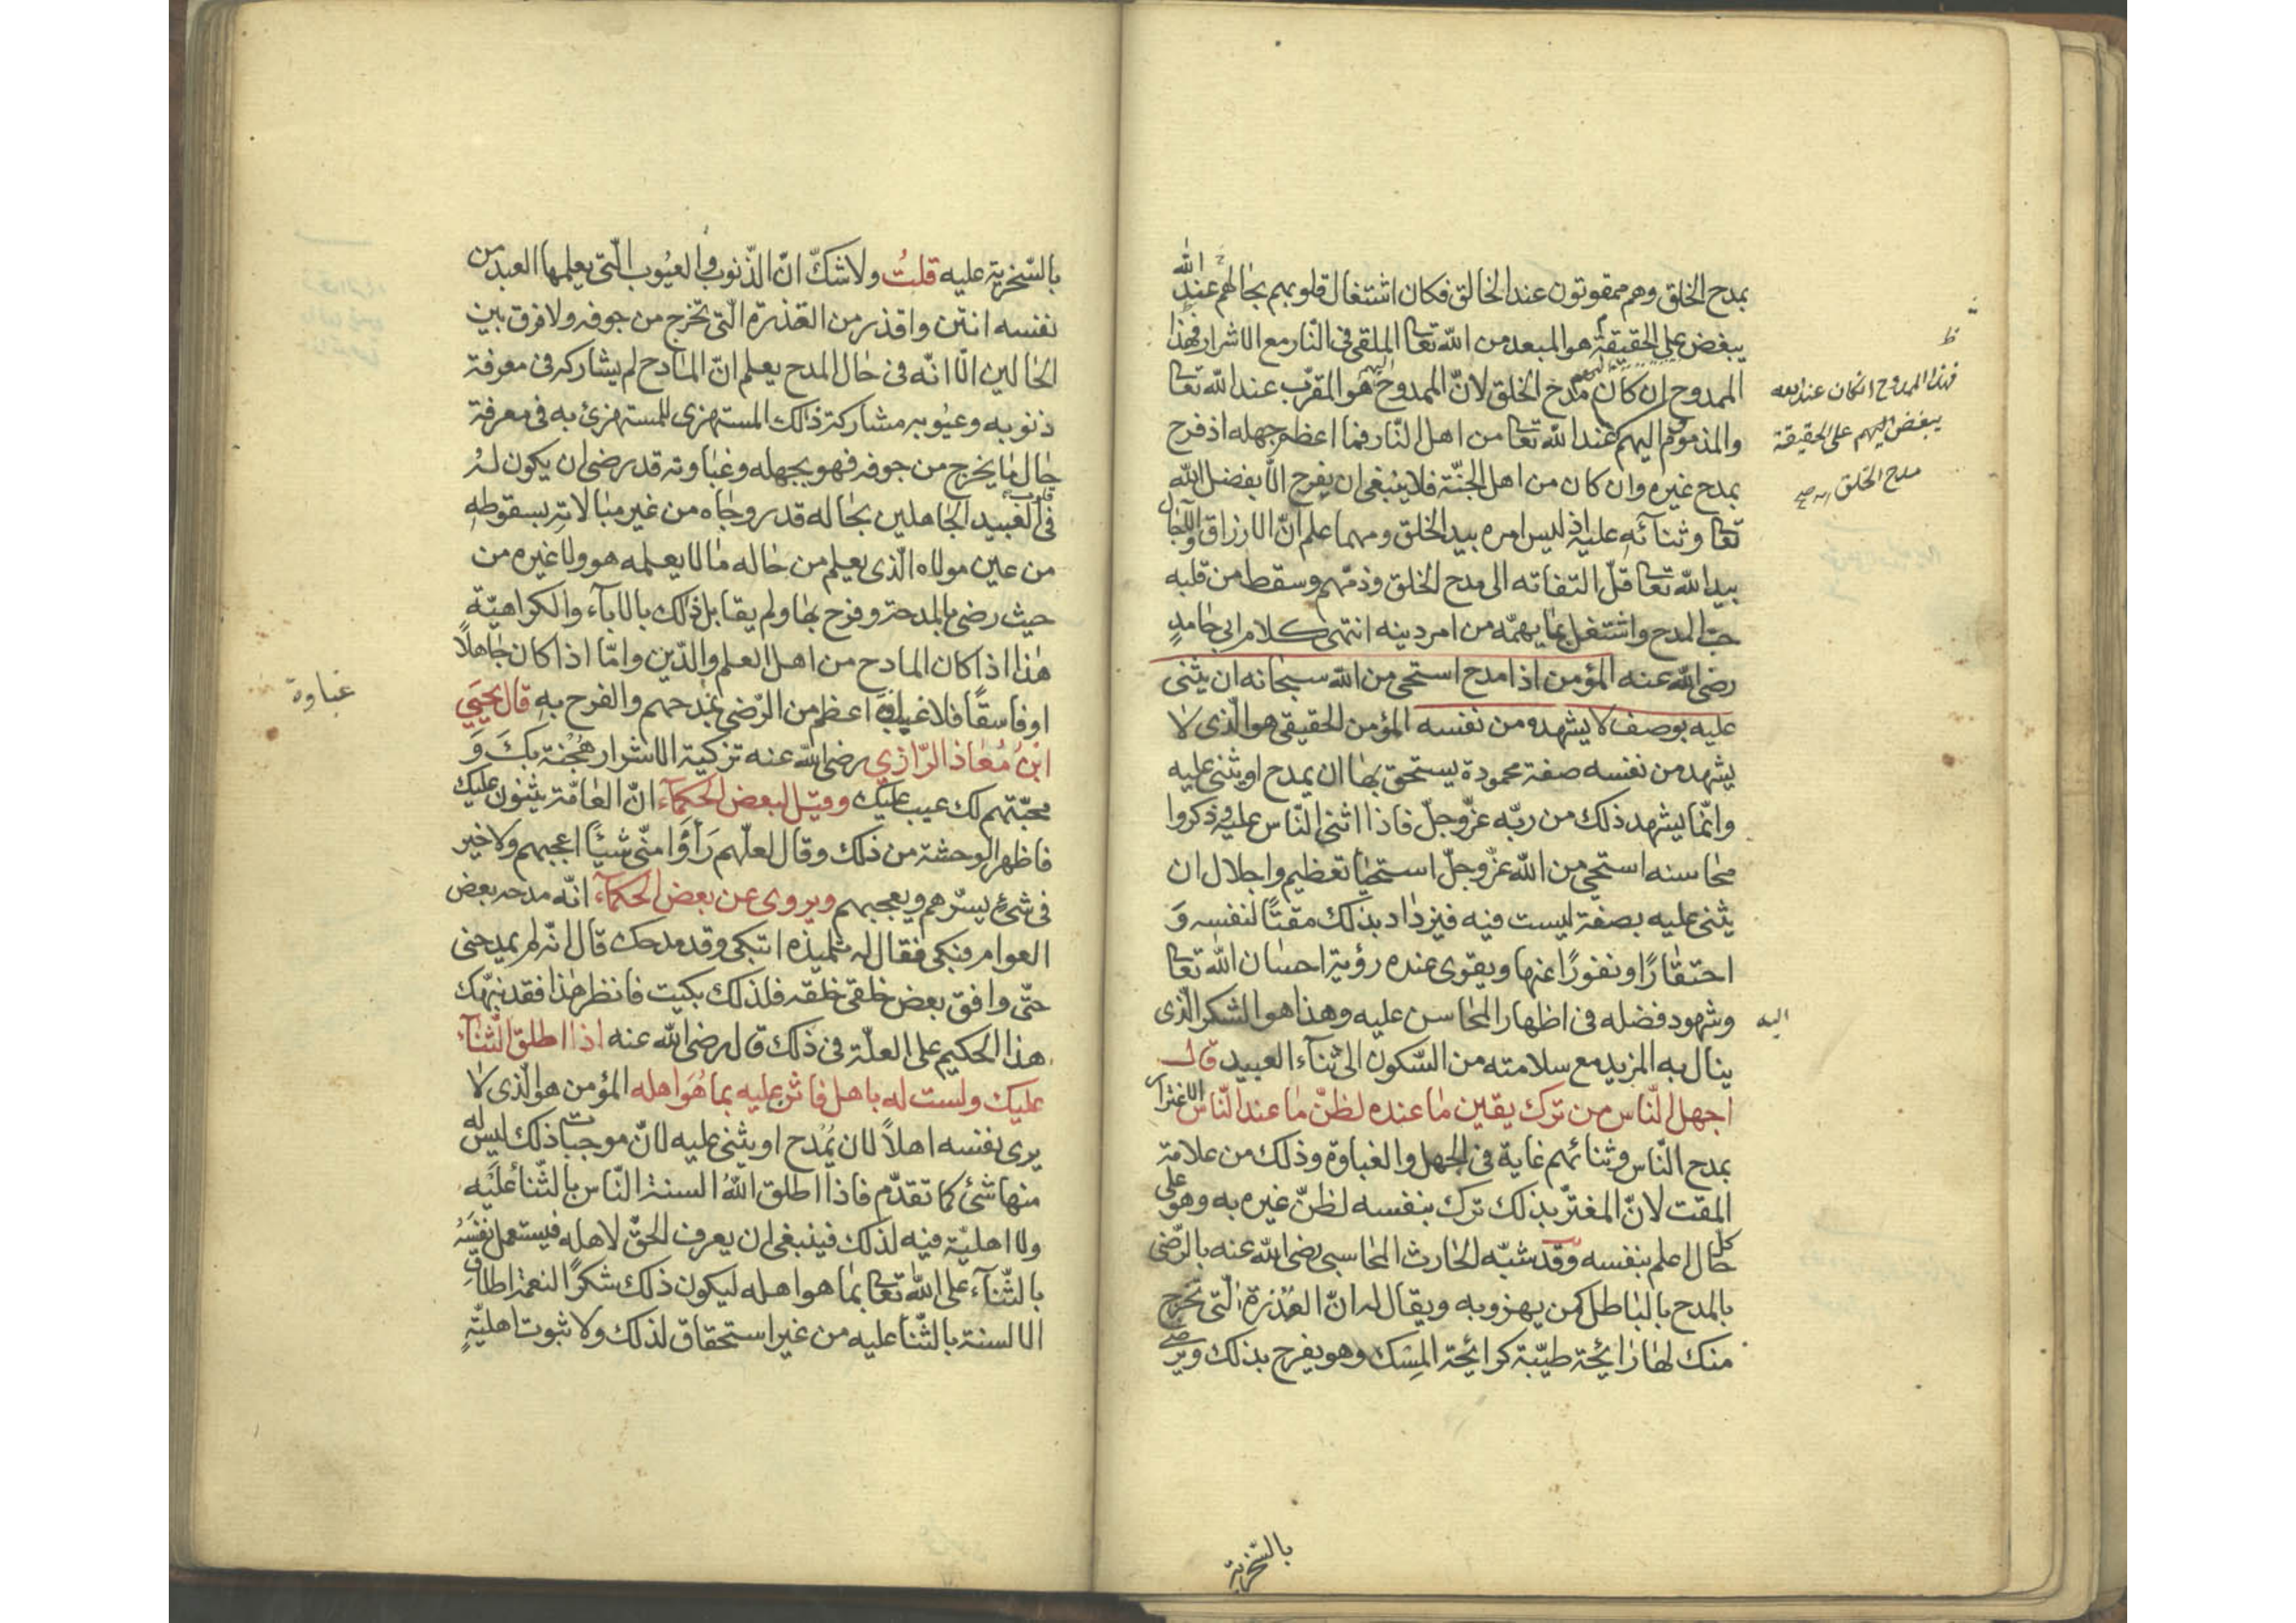 بمدح الخلق وهم ممقوتون عند الخالق فكان اشتغال قلوبهم بحالهم عند الله
يبغض على الحقيقة هو المبعد من الله تعا الملقى فى النّار مع الاشرار فهذا
الممدوح ان كان مدح الخلق لانّ الممدوح هو المقرّب عند الله تعا
والمذموم اليهم عند الله تعا من اهل النّار فما اعظم جهله اذ فرح
بمدح غيره وان كان من اهل الجنّة فلا ينبغى ان يفرح الّا بفضل الله
تعا وثنائه عليه اذ ليس امره بيد الخلق ومهما علم انّ الارزاق والآجال
بيد الله تعا قلّ التفاته الى مدح الخلق وذمّهم وسقط من قلبه
حبّ المدح واشتغل بما يهمّه من امر دينه انتهى كلام ابى حامد
رضى الله عنه المؤمن اذا مدح استحى من الله سبحانه ان يثنى
عليه بوصف لا يشهده من نفسه المؤمن الحقيقى هو الّذى لا
يشهد من نفسه صفة محمودة يستحق بها ان يمدح او يثنى عليه
وانّما يشهد ذلك من ربّه عزّ وجلّ فاذا اثنى النّاس عليه وذكروا
محاسنه استحى من الله عزّ وجلّ استحيا تعظيم واجلال ان
يثنى عليه بصفة ليست فيه فيزداد بذلك مقتًا لنفسه وَ
احتقارًا ونفورًا عنها ويقوى عنده رؤية احسان الله تعا
وشهود فضله فى اظهار المحاسن عليه وهذا هو الشكر الّذى
ينال به المزيد مع سلامته من السّكون الى ثنآء العبيد قال
اجهل النّاس من ترك يقين ما عنده لظنّ ما عند النّاس الاغترار
بمدح النّاس وثنائهم غاية فى الجهل والغباوة وذلك من علامة
المقت لانّ المغترّ بذلك ترك بنفسه لظنّ غيره به وهو على
كل حال اعلم بنفسه وقد شبّه الحارث المحاسبى رضى الله عنه بالرّضى
بالمدح بالباطل كمن يهزو به ويقال له انّ العذرة الّتى تخرج
منك لها رائحة طيّبة كرائحة المِسْك وهو يفرح بذلك ويرضى
فهذا الممدوح ان كان عند الله
يبغض اليهم على الحقيقة
مدح الخلق
اليه
بالسّخرية
بالسّخرية عليه قلتُ ولا شكّ انّ الذّنوب والعيُوب الّتى يعلمها العبد من
نفسه انتن واقذر من القذرة الّتى تخرج من جوفه ولا فرق بين
الحالين الّا انّه فى حال المدح يعلم انّ المادح لم يشاركه فى معرفة
ذنوبه وعيُوبه مشاركة ذلك المستهزى للمستهزئ به فى معرفة
حال ما يخرج من جوفه فهو بجهله وغباوته قد رضى ان يكون لهُ
فى قلوب العبيد الجاهلين بحاله قدر وجاه من غير مبالاته بسقوطه
من عين مولاه الّذى يعلم من حاله ما لا يعلمه هو ولا غيره من
حيث رضى بالمدحة وفرح بها ولم يقابل ذلك بالابآء والكراهيّة
هذا اذا كان المادح من اهل العلم والدّين وامّا اذا كان جاهلًا
او فاسقًا فلا غباوة اعظم من الرّضى بمدحهم والفرح به قال يحيَى
ابْنُ مُعَاذ الرّازى رضى الله عنه تزكية الاشرار هُجْنة بكَ وَ
محبّتهم لك عيب عَليْك وقيل لبعض الحكمآء انّ العامّة يثنون عليك
فاظهر الوحشة من ذلك وقال لعلّهم رَأَوْا منّى شيئًا اعجبهم ولا خير
فى شئ يسرّهم ويعجبهم ويروى عن بعض الحكمآء انّه مدحه بعض
العوام فبكى فقال له تلميذه اتبكى وقد مدحك قال انّه لم يمدحنى
حتّى وافق بعض خلقى خلقه فلذلك بكيت فانظر هذا فقد نبّهك
هذا الحكيم على العلّة فى ذلك قال رضى الله عنه اذا اطلق الثنآء
عليك ولست له باهل فاثن عليه بما هُوَ اهله المؤمن هو الّذى لا
يرى نفسه اهلاً لان يُمْدح او يثنى عليه لانّ موجبات ذلك ليس له
منها شئ كما تقدّم فاذا اطلق اللهُ السنة النّاس بالثّنآ عليْه
ولا اهليّة فيه لذلك فينبغى ان يعرف الحقّ لاهله فيستعمل نفسَهُ
بالثّنآء على الله تعا بما هو اهله ليكون ذلك شكرًا لنعمة اطلاق
الالسنة بالثّنآ عليه من غير استحقاق لذلك ولا ثبوت اهليّةٍ
غباوة